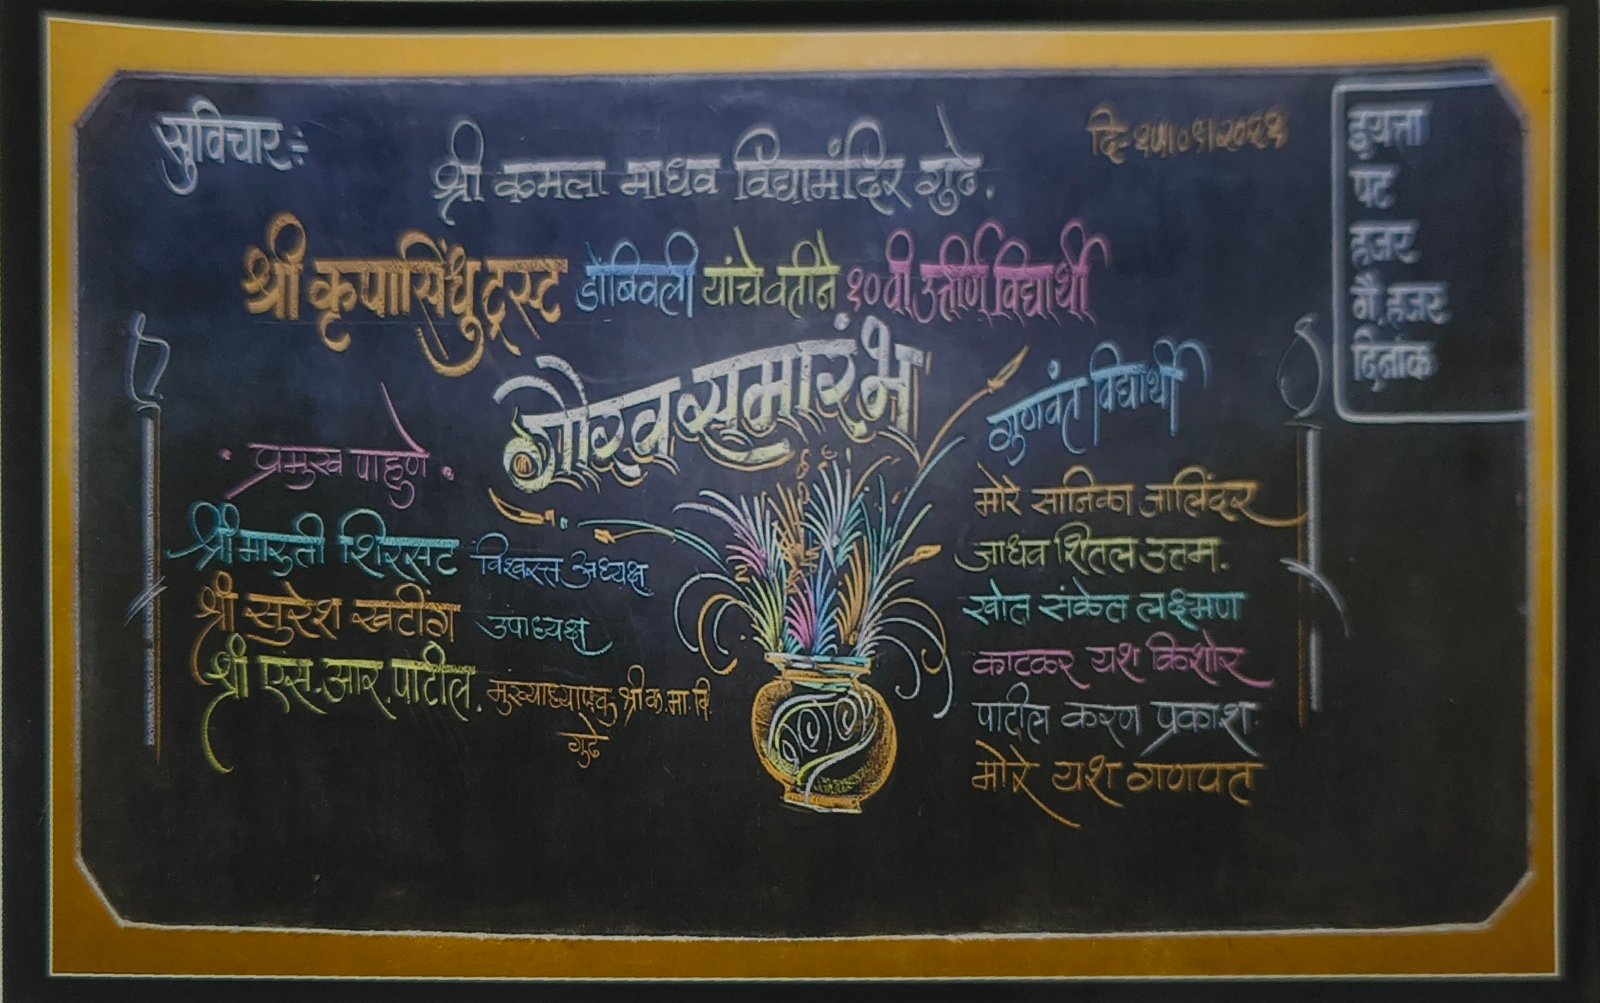 सुविचार:-
श्री कमला माधव विद्यामंदिर गुढे.
श्री कृपासिंधु ट्रस्ट डोंबिवली यांचे वतीने १०वी उत्तीर्ण विद्यार्थी
गौरव समारंभ
प्रमुख पाहुणे
श्री मारुती शिरसट विश्वस्त अध्यक्ष
श्री सुरेश खटींग उपाध्यक्ष
श्री एस.आर.पाटील. मुख्याध्यापक श्री क.मा.वि.
गुढे
गुणवंत विद्यार्थी
मोरे सानिका जालिंदर
जाधव शितल उत्तम.
खोत संकेत लक्ष्मण
काटकर यश किशोर
पाटील करण प्रकाश
मोरे यश गणपत
इयत्ता
पट
हजर
गै.हजर
दिनांक